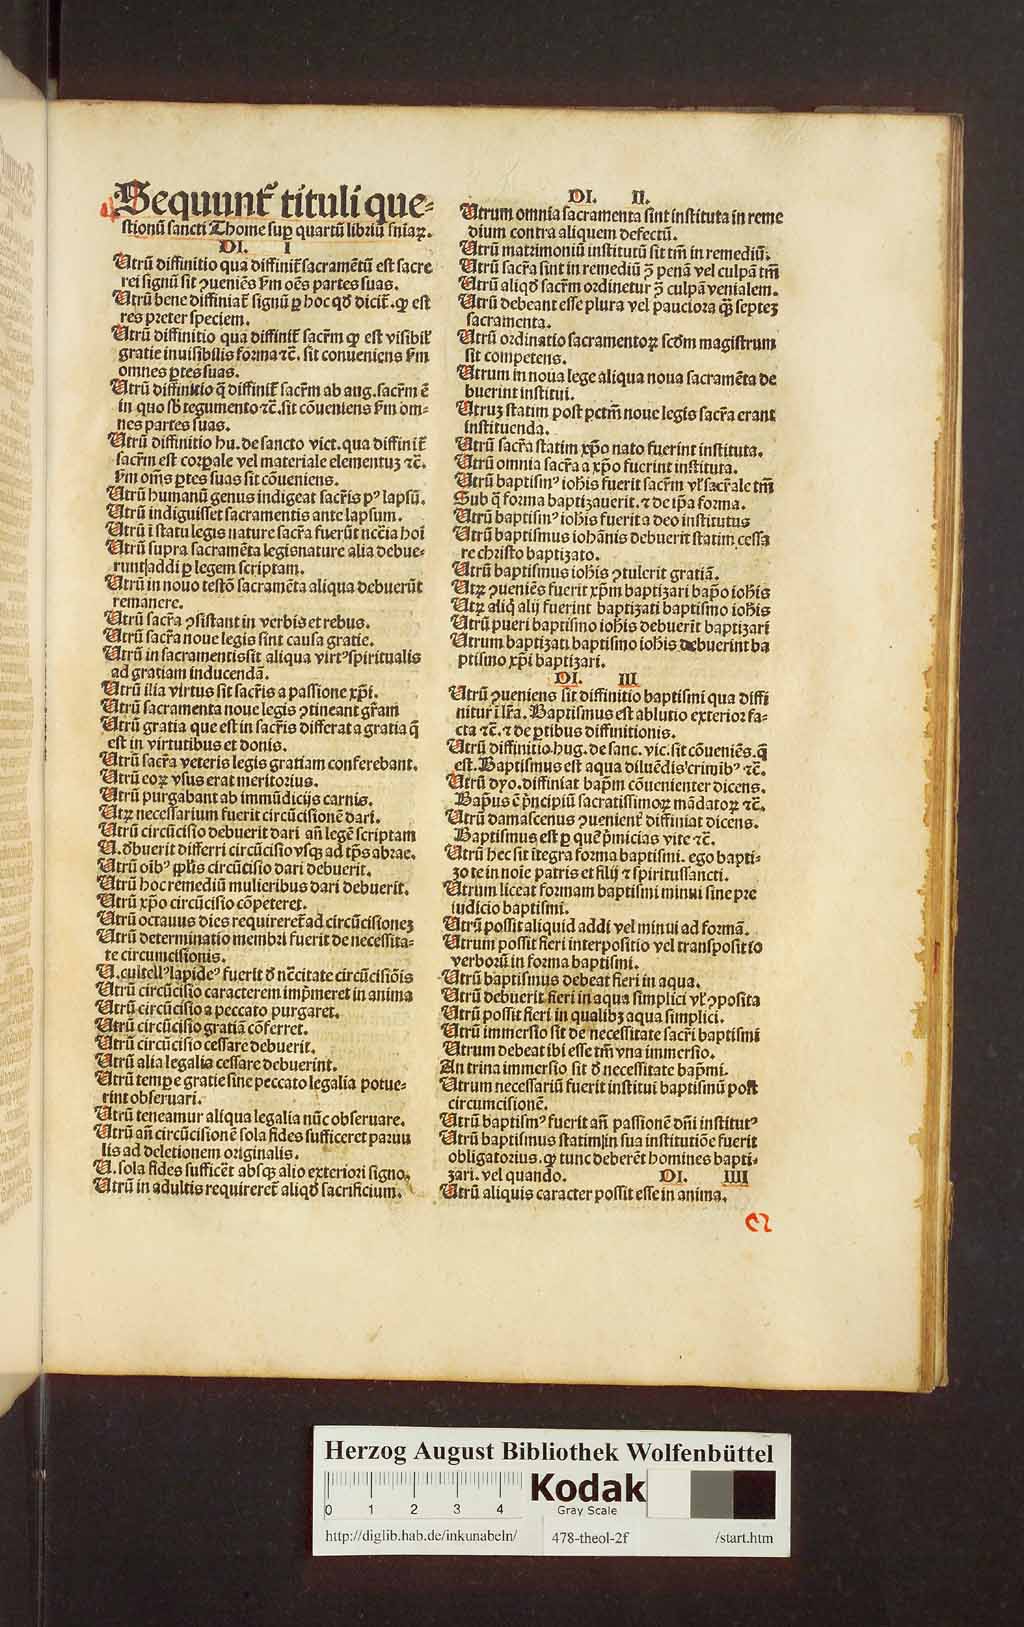 Sequunt᷑ tituli que⸗
stionū sancti Thome sup̲ quartū libriū sniaꝝ.
DI. I
Utrū diffinitio qua diffinit᷑ sacramētū est sacre
rei signū sit ꝯueniēs ẜm oēs partes suas.
Utrū bene diffiniat᷑ signū ꝑ hoc qd̄ dicit᷑. ꝙ est
res preter speciem.
Utrū diffinitio qua diffinit᷑ sacr̄m ꝙ est visibil᷑
gratie inuisibilis forma ⁊c̄. sit conueniens ẜm
omnes ꝑtes suas.
Utrū diffinitio q̄ diffinit᷑ sacr̄m ab aug. sacr̄m ē
in quo sb̄ tegumento ⁊c̄. sit cōueniens ẜm om⸗
nes partes suas.
Utrū diffinitio hu. de sancto vict. qua diffinit᷑
sacr̄m est corꝑale vel materiale elementuꝫ ⁊c̄.
ẜm om̄s ꝑtes suas sit cōueniens.
Utrū humanū genus indigeat sacr̄is pꝰ lapsū.
Utrū indiguisset sacramentis ante lapsum.
Utrū ī statu legis nature sacr̄a fuerūt nc̄cia hoī
Utrū supra sacramēta legis nature alia debue⸗
runt addi ꝑ legem scriptam.
Utrū in nouo testō sacramēta aliqua debuerūt
remanere.
Utrū sacr̄a ꝯsistant in verbis et rebus.
Utrū sacr̄a noue legis sint causa gratie.
Utrū in sacramentis sit aliqua virtꝰ spiritualis
ad gratiam inducendā.
Utrū illa virtus sit sacr̄is a passione xp̄i.
Utrū sacramenta noue legis ꝯtineant gr̄am
Utrū gratia que est in sacr̄is differat a gratia q̄
est in virtutibus et donis.
Utrū sacr̄a veteris legis gratiam conferebant.
Utrū eoꝝ vsus erat meritorius.
Utrū purgabant ab immūdicijs carnis.
Utꝝ necessarium fuerit circūcisionē dari.
Utrū circūcisio debuerit dari an̄ legē scriptam
U. d̄buerit differri circūcisio vsqꝫ ad tp̄s abrae.
Utrū oībꝰ ppl̄is circūcisio dari debuerit.
Utrū hoc remediū mulieribus dari debuerit.
Utrū xp̄o circūcisio cōpeteret.
Utrū octauus dies requireret᷑ ad circūcisioneꝫ
Utrū determinatio membri fuerit de necessita⸗
te circumcisionis.
U. cultellꝰ lapideꝰ fuerit d̄ nc̄citate circūcisiōis
Utrū circūcisio caracterem imp̄meret in anima
Utrū circūcisio a peccato purgaret.
Utrū circūcisio gratiā cōferret.
Utrū circūcisio cessare debuerit.
Utrū alia legalia cessare debuerint.
Utrū tempꝑe gratie sine peccato legalia potue⸗
rint obseruari.
Utrū teneamur aliqua legalia nūc obseruare.
Utrū an̄ circūcisionē sola fides sufficeret paruu
lis ad deletionem originalis.
U. sola fides sufficēt absqꝫ alio exteriori signo.
Utrū in adultis requireret᷑ aliqd̄ sacrificium.
DI. II.
Utrum omnia sacramenta sint instituta in reme
dium contra aliquem defectū.
Utrū matrimoniū institutū sit tm̄ in remediū.
Utrū sacr̄a sint in remediū ꝯ̄ penā vel culpā tm̄
Utrū aliqd̄ sacr̄m ordinetur ꝯ̄ culpā venialem.
Utrū debeant esse plura vel pauciora qꝫ̄ septeꝫ
sacramenta.
Utrū ordinatio sacramentoꝝ scd̄m magistrum
sit competens.
Utrum in noua lege aliqua noua sacramēta de
buerint institui.
Utruꝫ statim post pctm̄ noue legis sacr̄a erant
instituenda.
Utrū sacr̄a statim xp̄o nato fuerint instituta.
Utrū omnia sacr̄a a xp̄o fuerint instituta.
Utrū baptismꝰ ioh̄is fuerit sacr̄m vl̓ sacr̄ale tm̄
Sub q̄ forma baptizauerit. ⁊ de ip̄a forma.
Utrū baptismꝰ ioh̄is fuerit a deo institutus
Utrū baptismus iohānis debuerit statim cessa
re christo baptizato.
Utrū baptismus ioh̄is ꝯtulerit gratiā.
Utꝝ ꝯueniēs fuerit xp̄m baptizari bap̄o ioh̄is
Utꝝ aliq̄ alij fuerint baptizati baptismo ioh̄is
Utrū pueri baptismo ioh̄is debuerīt baptizari
Utrum baptizati baptismo ioh̄is debuerint ba
ptismo xp̄i baptizari.
DI. III
Utrū ꝯueniens sit diffinitio baptismi qua diffi
nitur ī lr̄a. Baptismus est ablutio exterior fa⸗
cta ⁊c̄. ⁊ de ꝑtibus diffinitionis.
Utrū diffinitio hug. de sanc. vic. sit cōueniēs. q̄
est. Baptismus est aqua diluēdis crimībꝰ ⁊c̄.
Utrū dyo. diffiniat bap̄m cōuenienter dicens.
Bap̄us ē p̄ncipiū sacratissimoꝝ mādatoꝝ ⁊c̄.
Utrū damascenus ꝯuenient᷑ diffiniat dicens.
Baptismus est ꝑ quē p̄micias vite ⁊c̄.
Utrū hec sit ītegra forma baptismi. ego bapti⸗
zo te in noīe patris et filij ⁊ spiritussancti.
Utrum liceat formam baptismi minui sine pre
iudicio baptismi.
Utrū possit aliquid addi vel minui ad formā.
Utrum possit fieri interpositio vel transpositio
verborū in forma baptismi.
Utrū baptismus debeat fieri in aqua.
Utrū debuerit fieri in aqua simplici vl̓ ꝯposita
Utrū possit fieri in qualibꝫ aqua simplici.
Utrū immersio sit de necessitate sacr̄i baptismi
Utrum debeat ibi esse tm̄ vna immersio.
An trina immersio sit d̄ necessitate bap̄mi.
Utrum necessariū fuerit institui baptismū post
circumcisionē.
Utrū baptismꝰ fuerit an̄ passionē dn̄i institutꝰ
Utrū baptismus statim in sua institutiōe fuerit
obligatorius. ꝙ tunc deberēt homines bapti⸗
zari. vel quando. DI. IIII
Utrū aliquis caracter possit esse in anima.
Herzog August Bibliothek Wolfenbüttel
0 1 2 3 4
Kodak
Gray Scale
http://diglib.hab.de/inkunabeln/ 478-theol-2f /start.htm